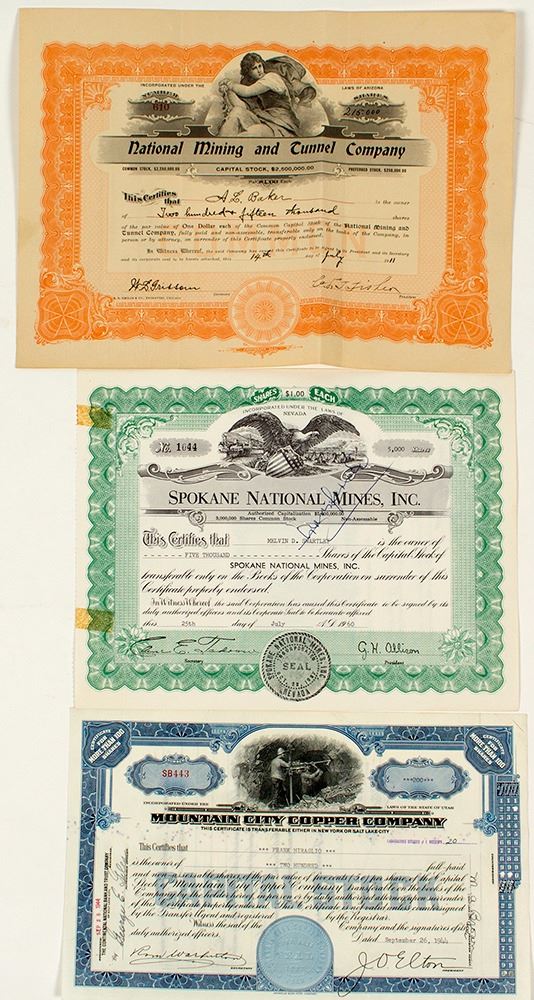 INCORPORATED UNDER THE LAWS OF ARIZONA
NUMBER SHARES
610 215000
National Mining and Tunnel Company
COMMON STOCK, $2,250,000.00 CAPITAL STOCK, $2,500,000.00 PREFERRED STOCK, $250,000.00
This Certifies that A E Baker is the owner
of Two hundred & fifteen thousand shares
of the par value of One Dollar each of the Common Capital Stock of the National Mining and
Tunnel Company, fully paid and non-assessable, transferable only on the books of the Company, in
person or by attorney, on surrender of this Certificate properly endorsed.
In Witness Whereof, the said Company has caused this Certificate to be signed by its President and its Secretary
and its corporate seal to be hereto attached, this 14th day of July 1911
Secretary President
SHARES $1.00 EACH
INCORPORATED UNDER THE LAWS OF
NEVADA
No. 1044 5,000 Shares
SPOKANE NATIONAL MINES, INC.
3,000,000 Shares Common Stock Non-Assessable
This Certifies that MELVIN D. SWARTLEY is the owner of
FIVE THOUSAND Shares of the Capital Stock of
SPOKANE NATIONAL MINES, INC.
transferable only on the Books of the Corporation on surrender of this
Certificate properly endorsed.
In Witness Whereof, the said Corporation has caused this Certificate to be signed by its
duly authorized officers and its Corporate Seal to be hereunto affixed
this 25th day of July A.D. 1960
G. H. Allison
Secretary President
SPOKANE NATIONAL MINES, INC.
INCORPORATED
SEAL
NEVADA
CERTIFICATE FOR MORE THAN 100 SHARES
CERTIFICATE FOR MORE THAN 100 SHARES
SB443 ***200***
INCORPORATED UNDER THE LAWS OF THE STATE OF UTAH
MOUNTAIN CITY COPPER COMPANY
THIS CERTIFICATE IS TRANSFERABLE EITHER IN NEW YORK OR SALT LAKE CITY
This Certifies that *** FRANK MIRAGLIO ***
is the owner of *** TWO HUNDRED *** full-paid
and non-assessable shares of the par value of five cents (5¢) per share of the Capital
Stock of Mountain City Copper Company transferable on the books of the
Company by the holder hereof in person or by duly authorized attorney on surrender
of this certificate properly endorsed. This certificate is not valid unless countersigned
by the Transfer Agent and registered by the Registrar.
Witness the seal of the Company and the signatures of its
duly authorized officers. Dated September 26, 1944
J O Elton
SECRETARY PRESIDENT
SEP 26 1944
THE CONTINENTAL NATIONAL BANK AND TRUST COMPANY